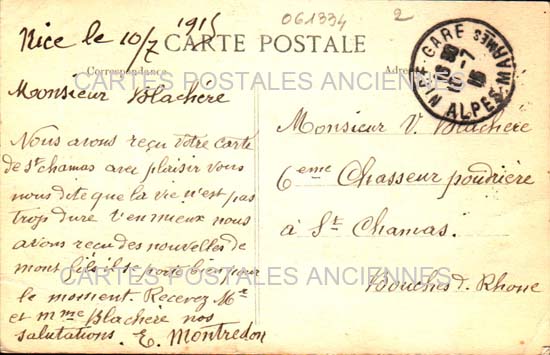 Nice le 10/7 1915
061334
2
CARTE POSTALE
Correspondance
Adres
GARE
10-7
15
ALPES
CARTES POSTALES ANCIENNES
Monsieur Blachère
Nous avons reçu votre carte
de St chamas avec plaisir vous
nous dite que la vie n'est pas
trop dure t'en mieux nous
avions recu des nouvelles de
mont fils il se porte bien pour
le moment. Recevez Mr
et mme Blachère nos
salutations. E. Montredon
Monsieur V. Blachère
6eme Chasseur poudrière
à St Chamas.
Bouches d. Rhone
CARTES POSTALES ANCIENNES